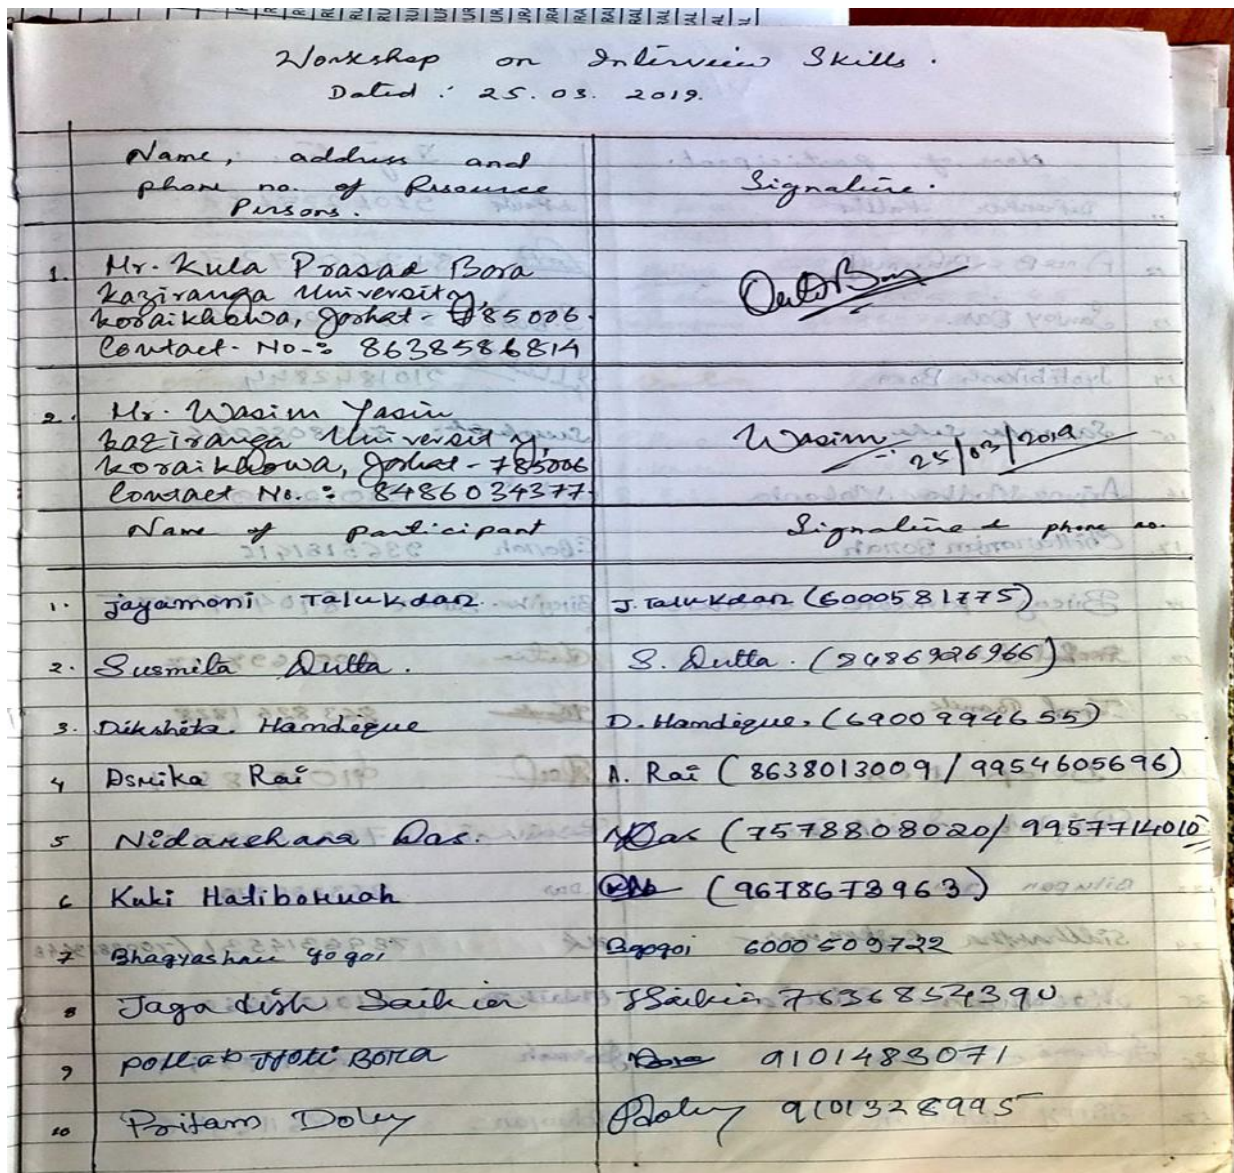 Workshop on Interview Skills.
Dated : 25.03. 2019.
Name, address and
phone no. of Resource
Persons.
Signature.
1. Mr. Kula Prasad Bora
Kaziranga University,
Koraikhowa, Jorhat - 785006.
Contact. No-: 8638586814
2. Mr. Wasim Yasin
Kaziranga University,
Koraikhowa, Jorhat - 785006
Contact No. : 8486034377.
Wasim 25/03/2019
Name of participant Signature & phone no.
1. Jayamoni Talukdar. J. Talukdar (6000581775)
2. Susmita Dutta. S. Dutta. (8486926966)
3. Dikshita Handique D. Handique. (6900994655)
4 Asmika Rai A. Rai (8638013009 / 9954605696)
5 Nidarshana Das. NDas (7578808020/ 9957714015
6 Kuki Hatiboruah (9678673963)
7 Bhagyashree Gogoi Bgogoi 6000509722
8 Jagadish Saikia JSaikia 7636854390
9 Pollab Jyoti Bora Bora 9101483071
10 Pritam Doley PDoley 9101328995